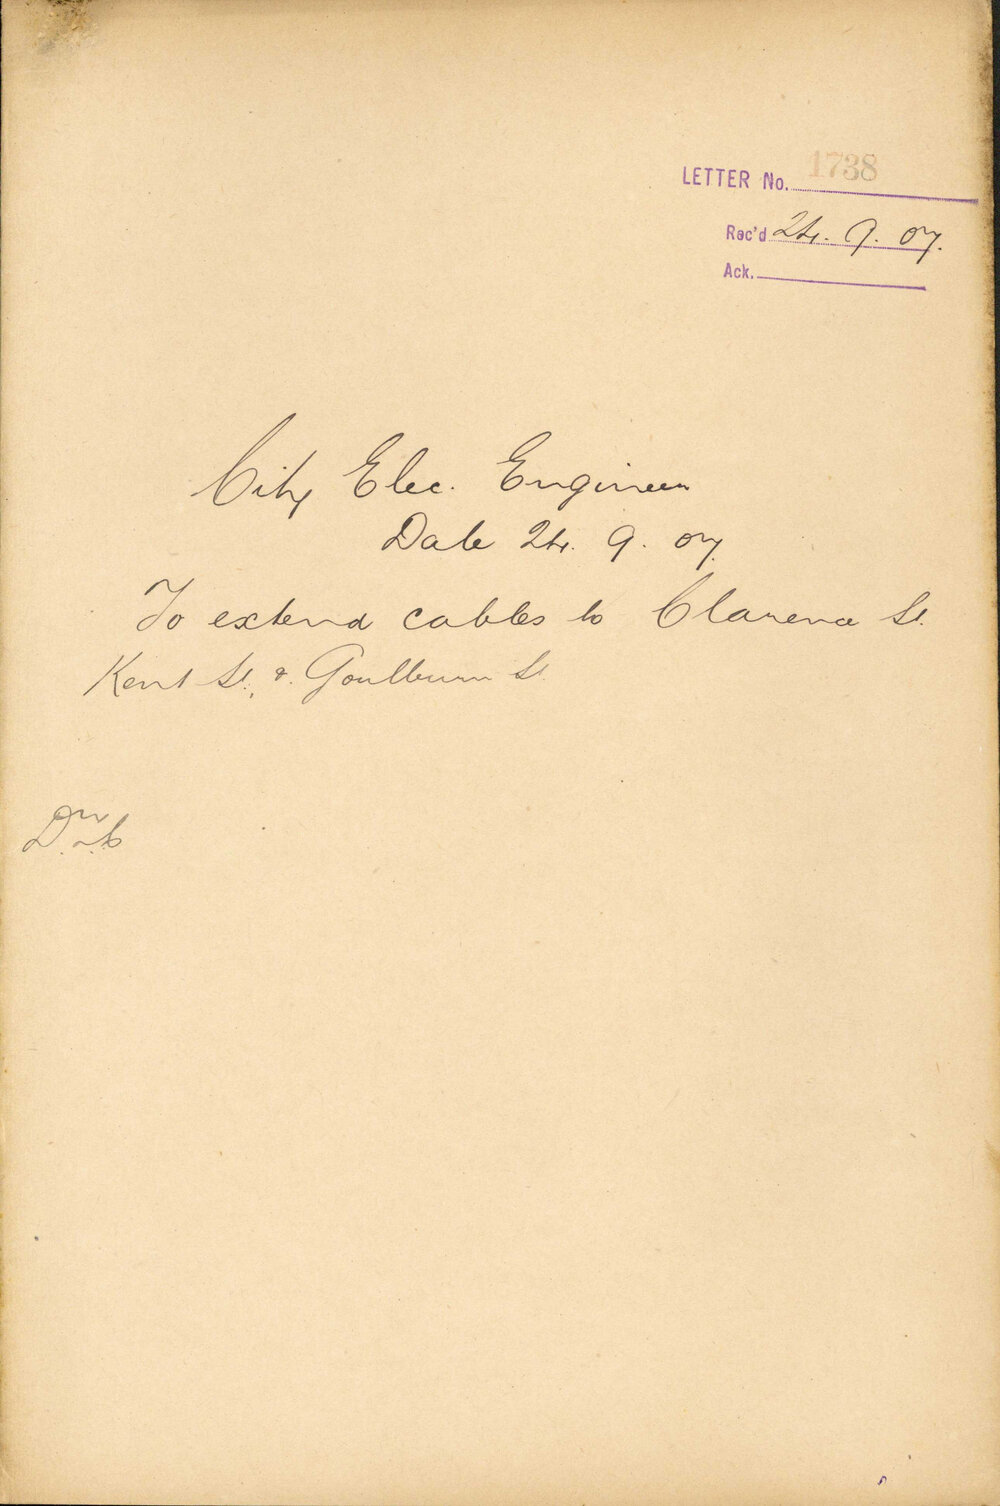 LETTER No. 1738
Rec'd 24. 9. 07.
Ack.
City Elec. Engineer
Date 24. 9. 07.
To extend cables to Clarence St.
Kent St. & Goulburn St.